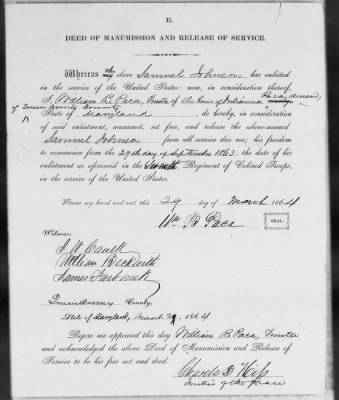 E.
DEED OF MANUMISSION AND RELEASE OF SERVICE.
Whereas my slave Samuel Johnson has enlisted
in the service of the United States: now, in consideration thereof,
I, William B. Paca, Trustee of the heirs of Paca, deceased,
of Queen Anns County
State of Maryland, do hereby, in consideration
of said enlistment, manumit, set free, and release the above-named
Samuel Johnson from all service due me; his freedom
to commence from the 29th day of September 1863. the date of his
enlistment as aforesaid in the Seventh Regiment of Colored Troops,
in the service of the United States.
Witness my hand and seal, this 29 day of March 1864
Wm B Paca
SEAL.
Witness:
J. W. Caulk
William
James
Queen County,
State of Maryland, March 29, 1864
Before me appeared this day William B. Paca, Trustee
and acknowledged the above Deed of Manumission and Release of
Service to be his free act and deed.
Charles
Justice of the Peace